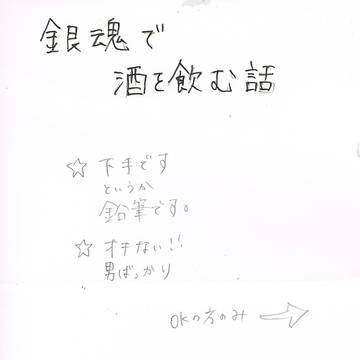 銀魂で
酒を飲む話
☆ 下手です
というか
鉛筆です。
☆ オチない!!
男ばっかり
OKの方のみ →